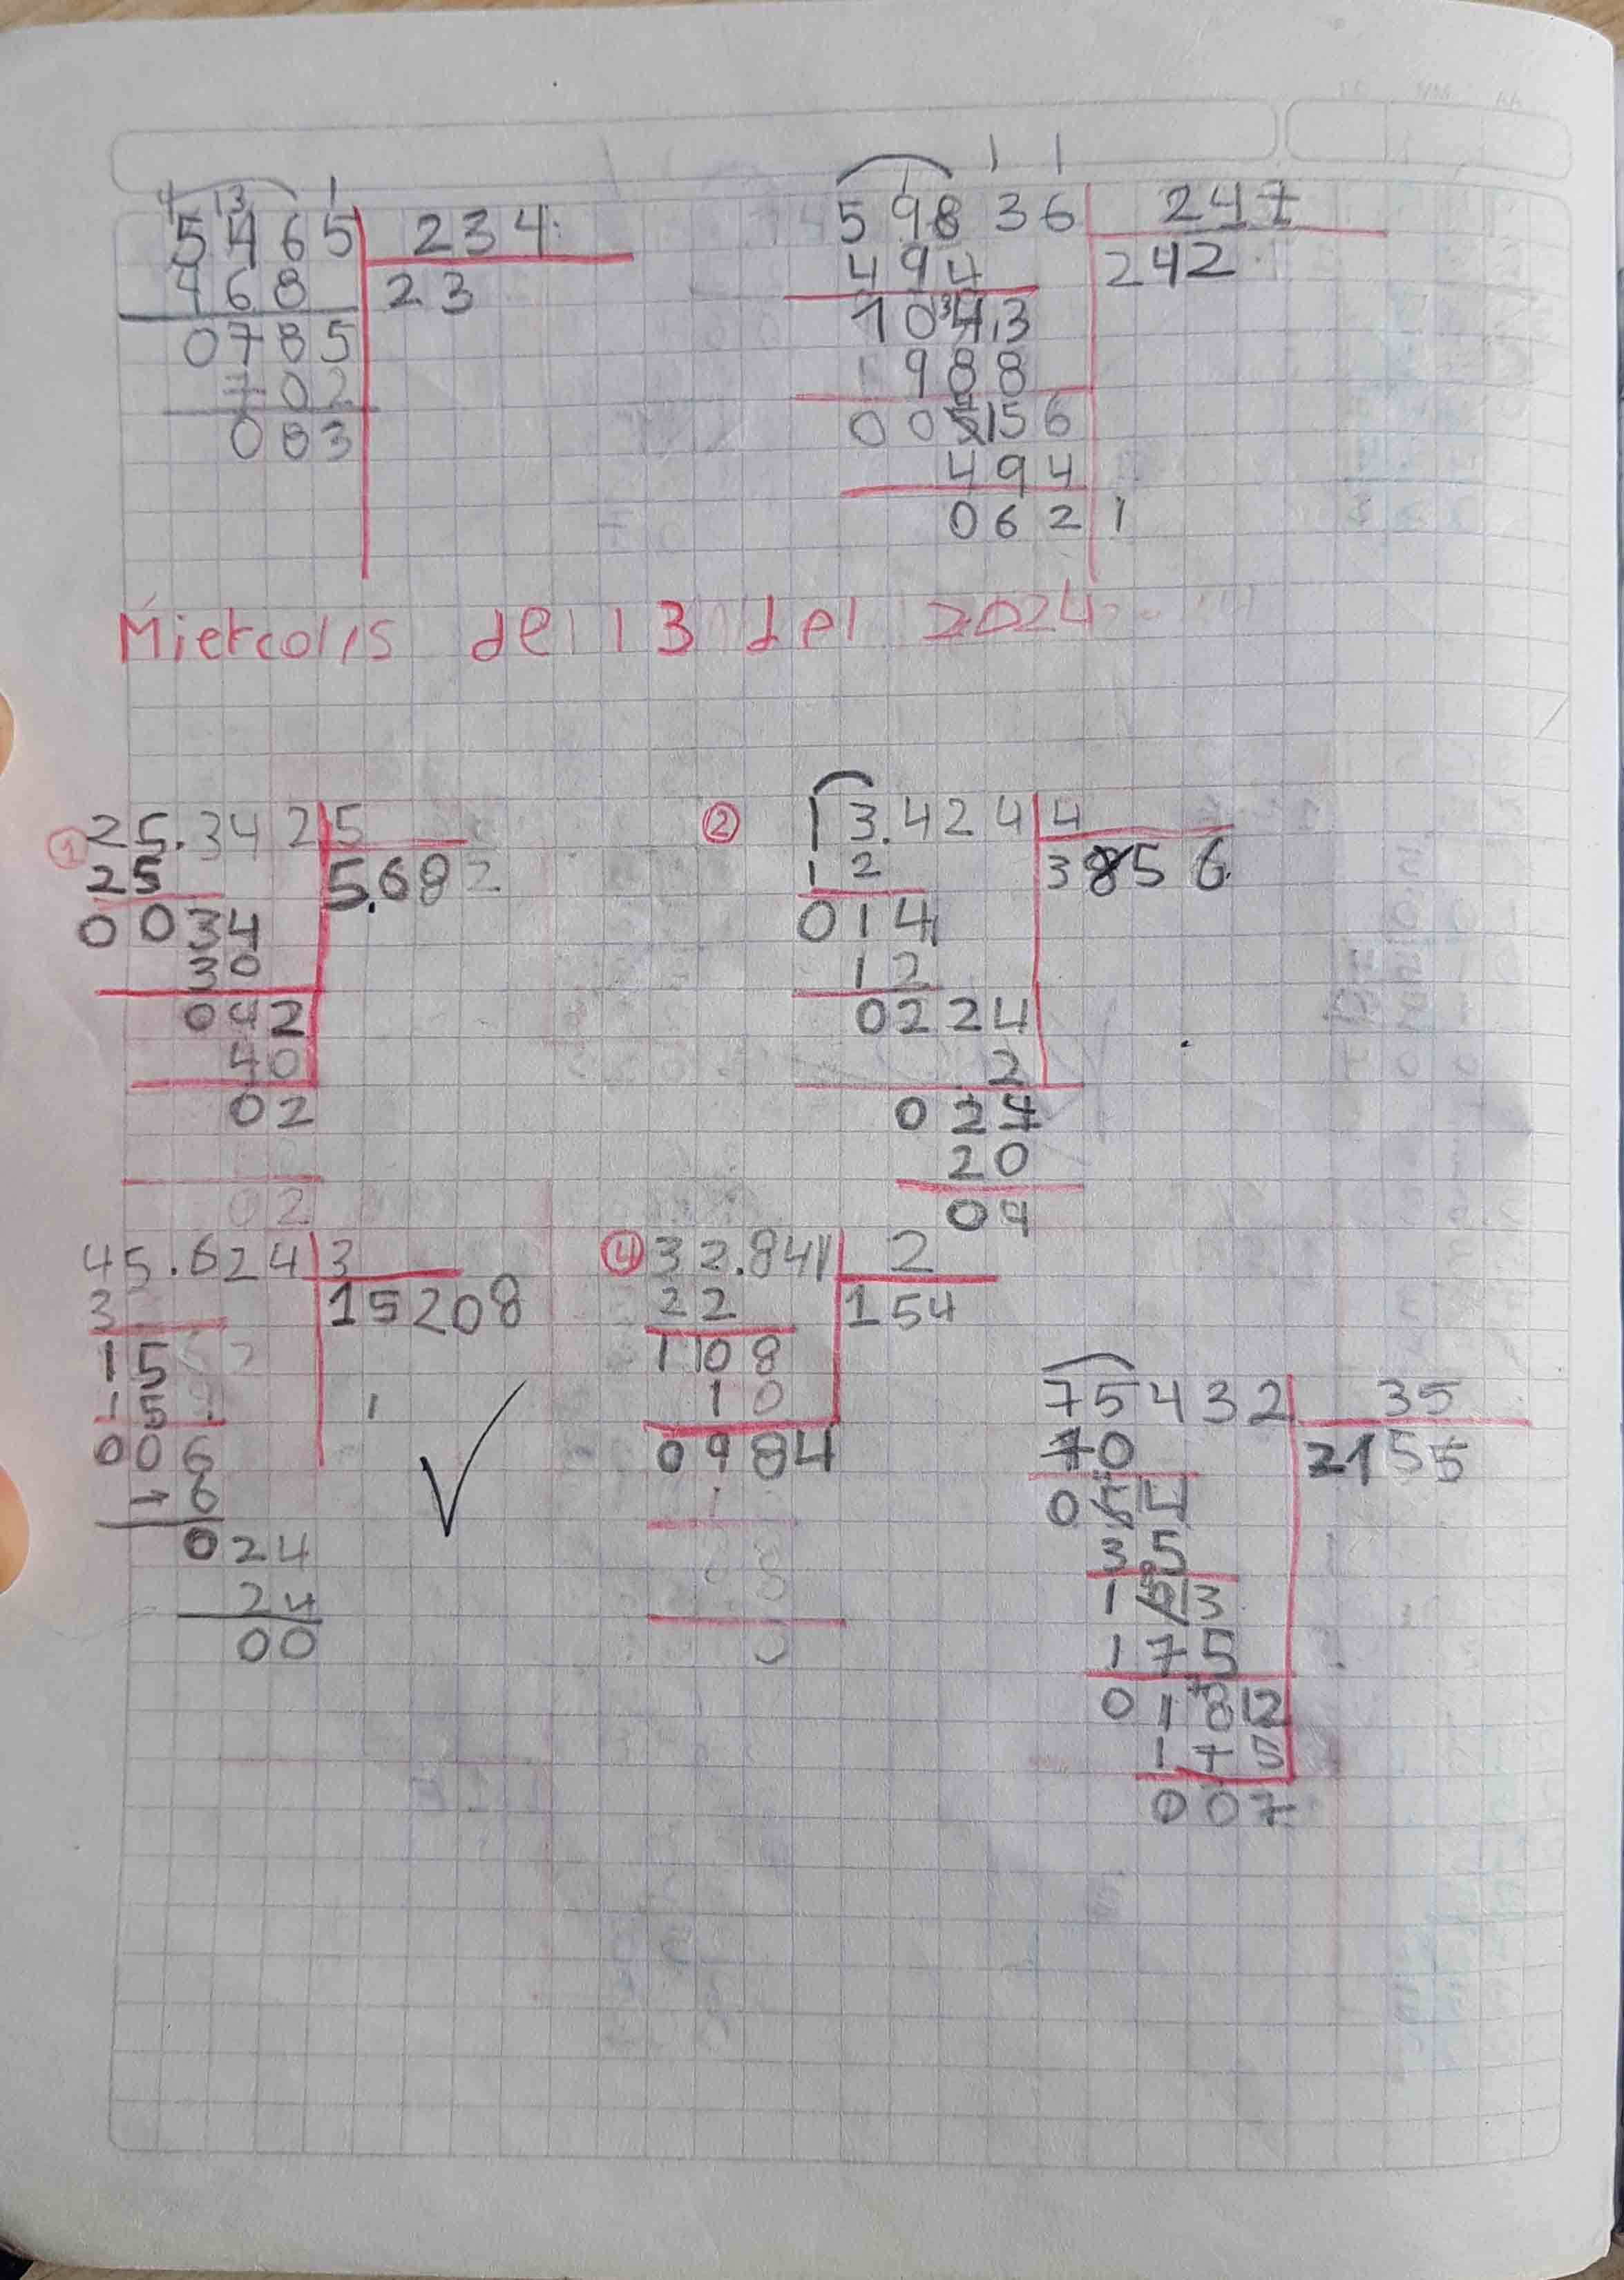 5465 234
468 23
0785
702
083
1 1
59836 247
494 242
1043
988
00556
494
0621
Miercolis del 13 del 2024
1 25.342 5
25 5.682
0034
30
042
40
02
02
2 13.424 4
12 3856
014
12
0224
2
024
20
04
45.624 3
3 15208
15
15
006
- 6
024
24
00
4 32.841 2
22 154
1108
10
0984
75432 35
70 2155
054
35
193
175
0182
175
007